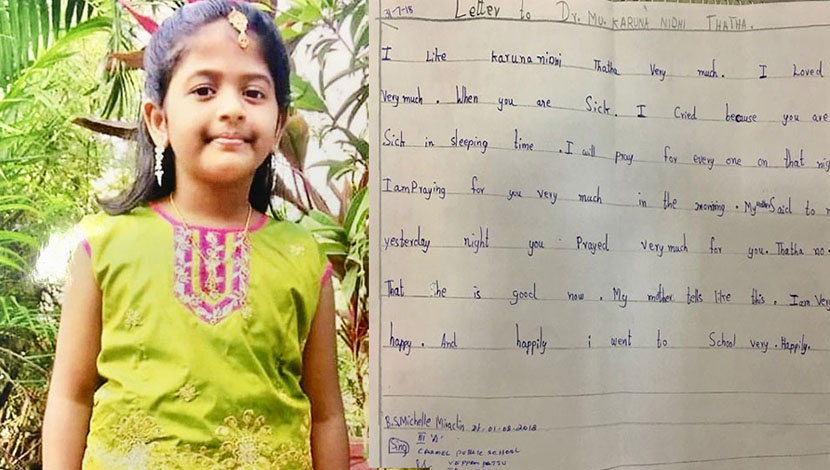 Letter to Dr. MU. KARUNA NIDHI THATHA.
31-7-18
I Like karuna nidhi Thatha Very much. I Loved
Very much. When you are Sick. I Cried because you are
Sick in sleeping time. I will pray for every one on that nig
I am Praying for you very much in the morning. My Said to m
yesterday night you Prayed very much for you. Thatha no.
That he is good now. My mother tells like this. I am Ver
happy. And happily i went to School very. Happily.
B.S.Michelle Miraclin dt. 01.08.2018
III 'A'
Sing CARMEL PUBLIC SCHOOL